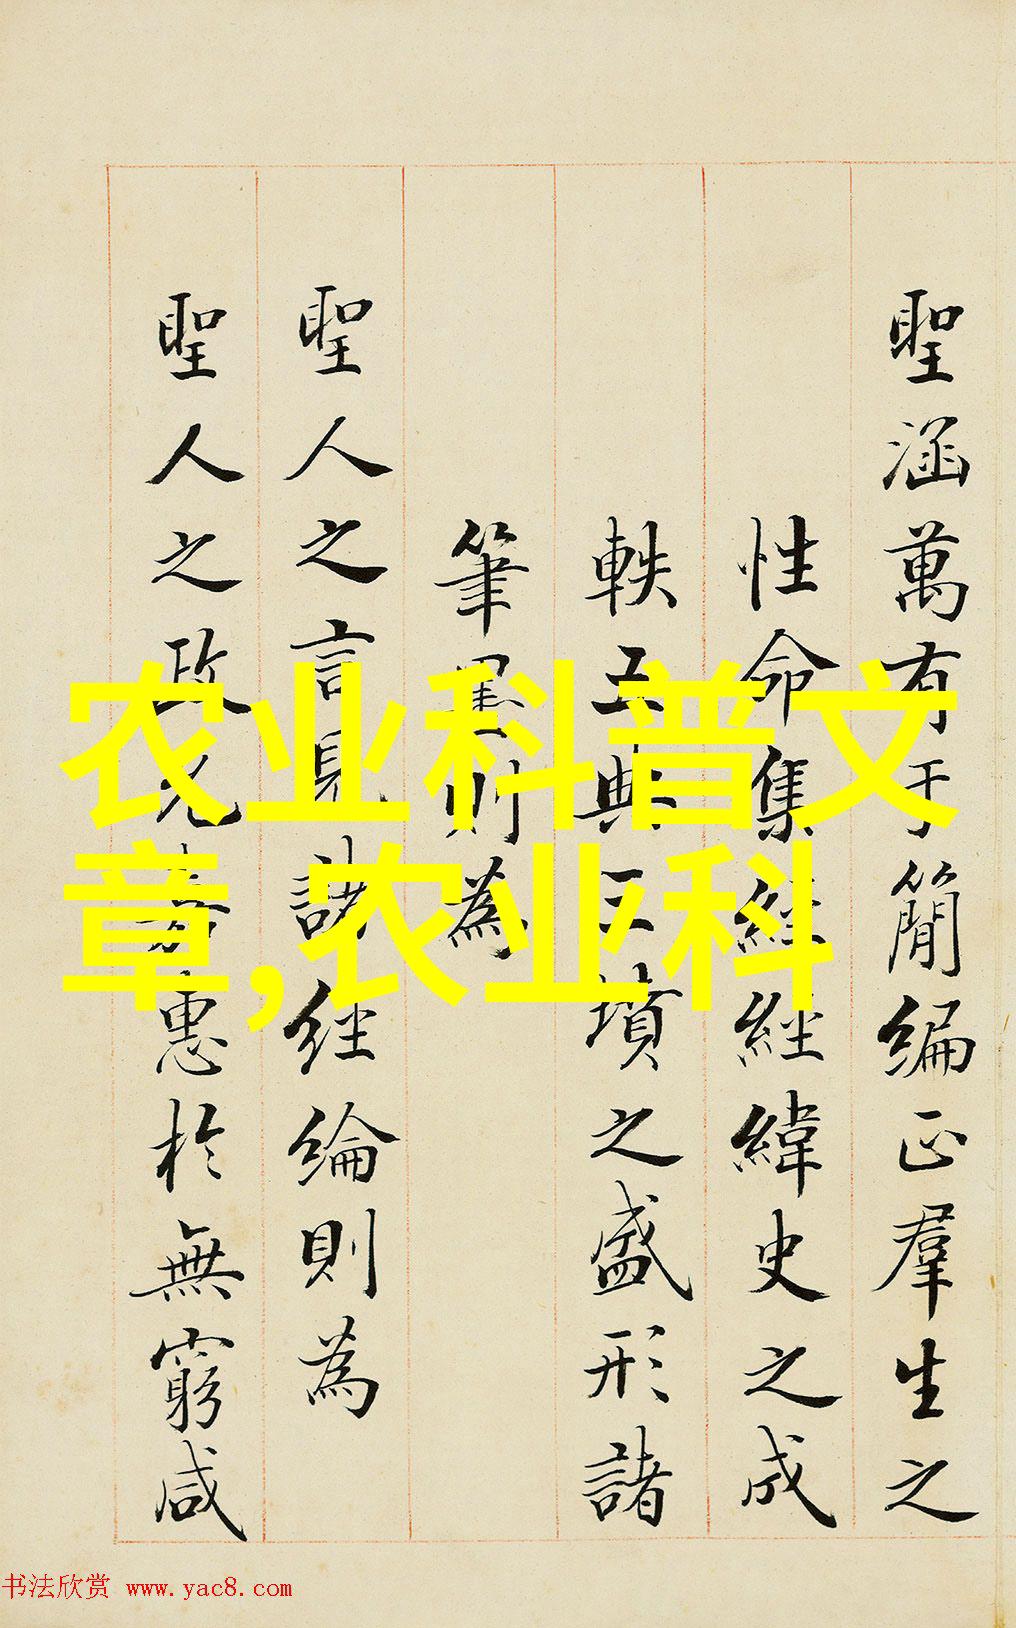 聖涵萬有于簡編正羣生之
性命集經經緯史之成
軼五典三墳之盛形諸
筆墨則為
聖人之言見諸經綸則為
聖人之政允善惠於無窮咸
农业科普文
章,农业科
书法欣赏 www.yac8.com